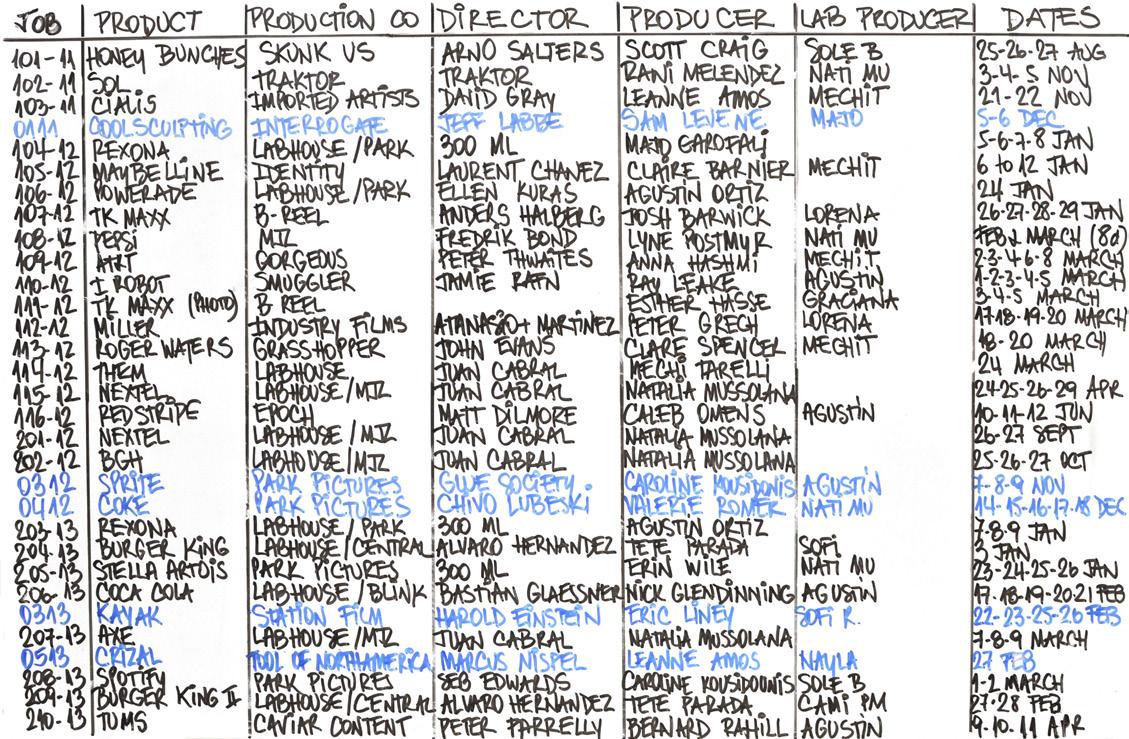 JOB PRODUCT PRODUCTION CO DIRECTOR PRODUCER LAB PRODUCER DATES
101-11 HONEY BUNCHES SKUNK US ARNO SALTERS SCOTT CRAIG SOLE B 25-26-27 AUG
102-11 SOL TRAKTOR TRAKTOR RANI MELENDEZ NATI MU 3-4-5 NOV
103-11 CIALIS IMPORTED ARTISTS DAVID GRAY LEANNE AMOS MECHIT 21-22 NOV
0111 COOLSCULPTING INTERROGATE JEFF LABBE SAM LEVENE MAJO 5-6 DEC
104-12 REXONA LABHOUSE/PARK 300 ML MAJO GAROFALI 5-6-7-8 JAN
105-12 MAYBELLINE IDENTITY LAURENT CHANEZ CLAIRE BARNIER MECHIT 6 to 12 JAN
106-12 POWERADE LABHOUSE/PARK ELLEN KURAS AGUSTIN ORTIZ 24 JAN
107-12 TK MAXX B-REEL ANDERS HALBERG JOSH BARWICK LORENA 26-27-28-29 JAN
108-12 PEPSI MJZ FREDRIK BOND LYNE POSTMYR NATI MU FEB & MARCH (8d)
109-12 AT&T GORGEOUS PETER THWAITES ANNA HASHMI MECHIT 2-3-4-6-8 MARCH
110-12 I ROBOT SMUGGLER JAMIE RAFN RAY LEAKE AGUSTIN 1-2-3-4-5 MARCH
111-12 TK MAXX (PHOTO) B REEL ESTHER HASSE GRACIANA 3-4-5 MARCH
112-12 MILLER INDUSTRY FILMS ATANASIO+MARTINEZ PETER GRECH LORENA 17-18-19-20 MARCH
113-12 ROGER WATERS GRASSHOPPER JOHN EVANS CLARE SPENCER MECHIT 18-20 MARCH
114-12 THEM LABHOUSE JUAN CABRAL MECHI TARELLI 24 MARCH
115-12 NEXTEL LABHOUSE/MJZ JUAN CABRAL NATALIA MUSSOLANA 24-25-26-29 APR
116-12 RED STRIPE EPOCH MATT DILMORE CALEB OMENS AGUSTÍN 10-11-12 JUN
201-12 NEXTEL LABHOUSE/MJZ JUAN CABRAL NATALIA MUSSOLANA 26-27 SEPT
202-12 BGH LABHOUSE/MJZ JUAN CABRAL NATALIA MUSSOLANA 25-26-27 OCT
0312 SPRITE PARK PICTURES GLUE SOCIETY. CAROLINE KOUSIDONIS AGUSTÍN 7-8-9 NOV
0412 COKE PARK PICTURES CHIVO LUBESKI VALERIE ROMER NATI MU 14-15-16-17-18 DEC
203-13 REXONA LABHOUSE/PARK 300 ML AGUSTIN ORTIZ 7-8-9 JAN
204-13 BURGER KING LABHOUSE/CENTRAL ALVARO HERNANDEZ TETE PARADA SOFI 3 JAN
205-13 STELLA ARTOIS PARK PICTURES 300 ML ERIN WILE NATI MU 23-24-25-26 JAN
206-13 COCA COLA LABHOUSE/BLINK BASTIAN GLAESSNER NICK GLENDINNING AGUSTIN 17-18-19-20-21 FEB
0313 KAYAK STATION FILM HAROLD EINSTEIN ERIC LINEY SOFI R. 22-23-25-26 FEB
207-13 AXE LABHOUSE/MJZ JUAN CABRAL NATALIA MUSSOLANA 7-8-9 MARCH
0513 CRIZAL TOOL OF NORTHAMERICA MARCUS NISPEL LEANNE AMOS NAYLA 27 FEB
208-13 SPOTIFY PARK PICTURES SEB EDWARDS CAROLINE KOUSIDOUNIS SOLE B 1-2 MARCH
209-13 BURGER KING II LABHOUSE/CENTRAL ALVARO HERNANDEZ TETE PARADA CAMI PM 27-28 FEB
210-13 TUMS CAVIAR CONTENT PETER FARRELLY BERNARD RAHILL AGUSTIN 9-10-11 APR